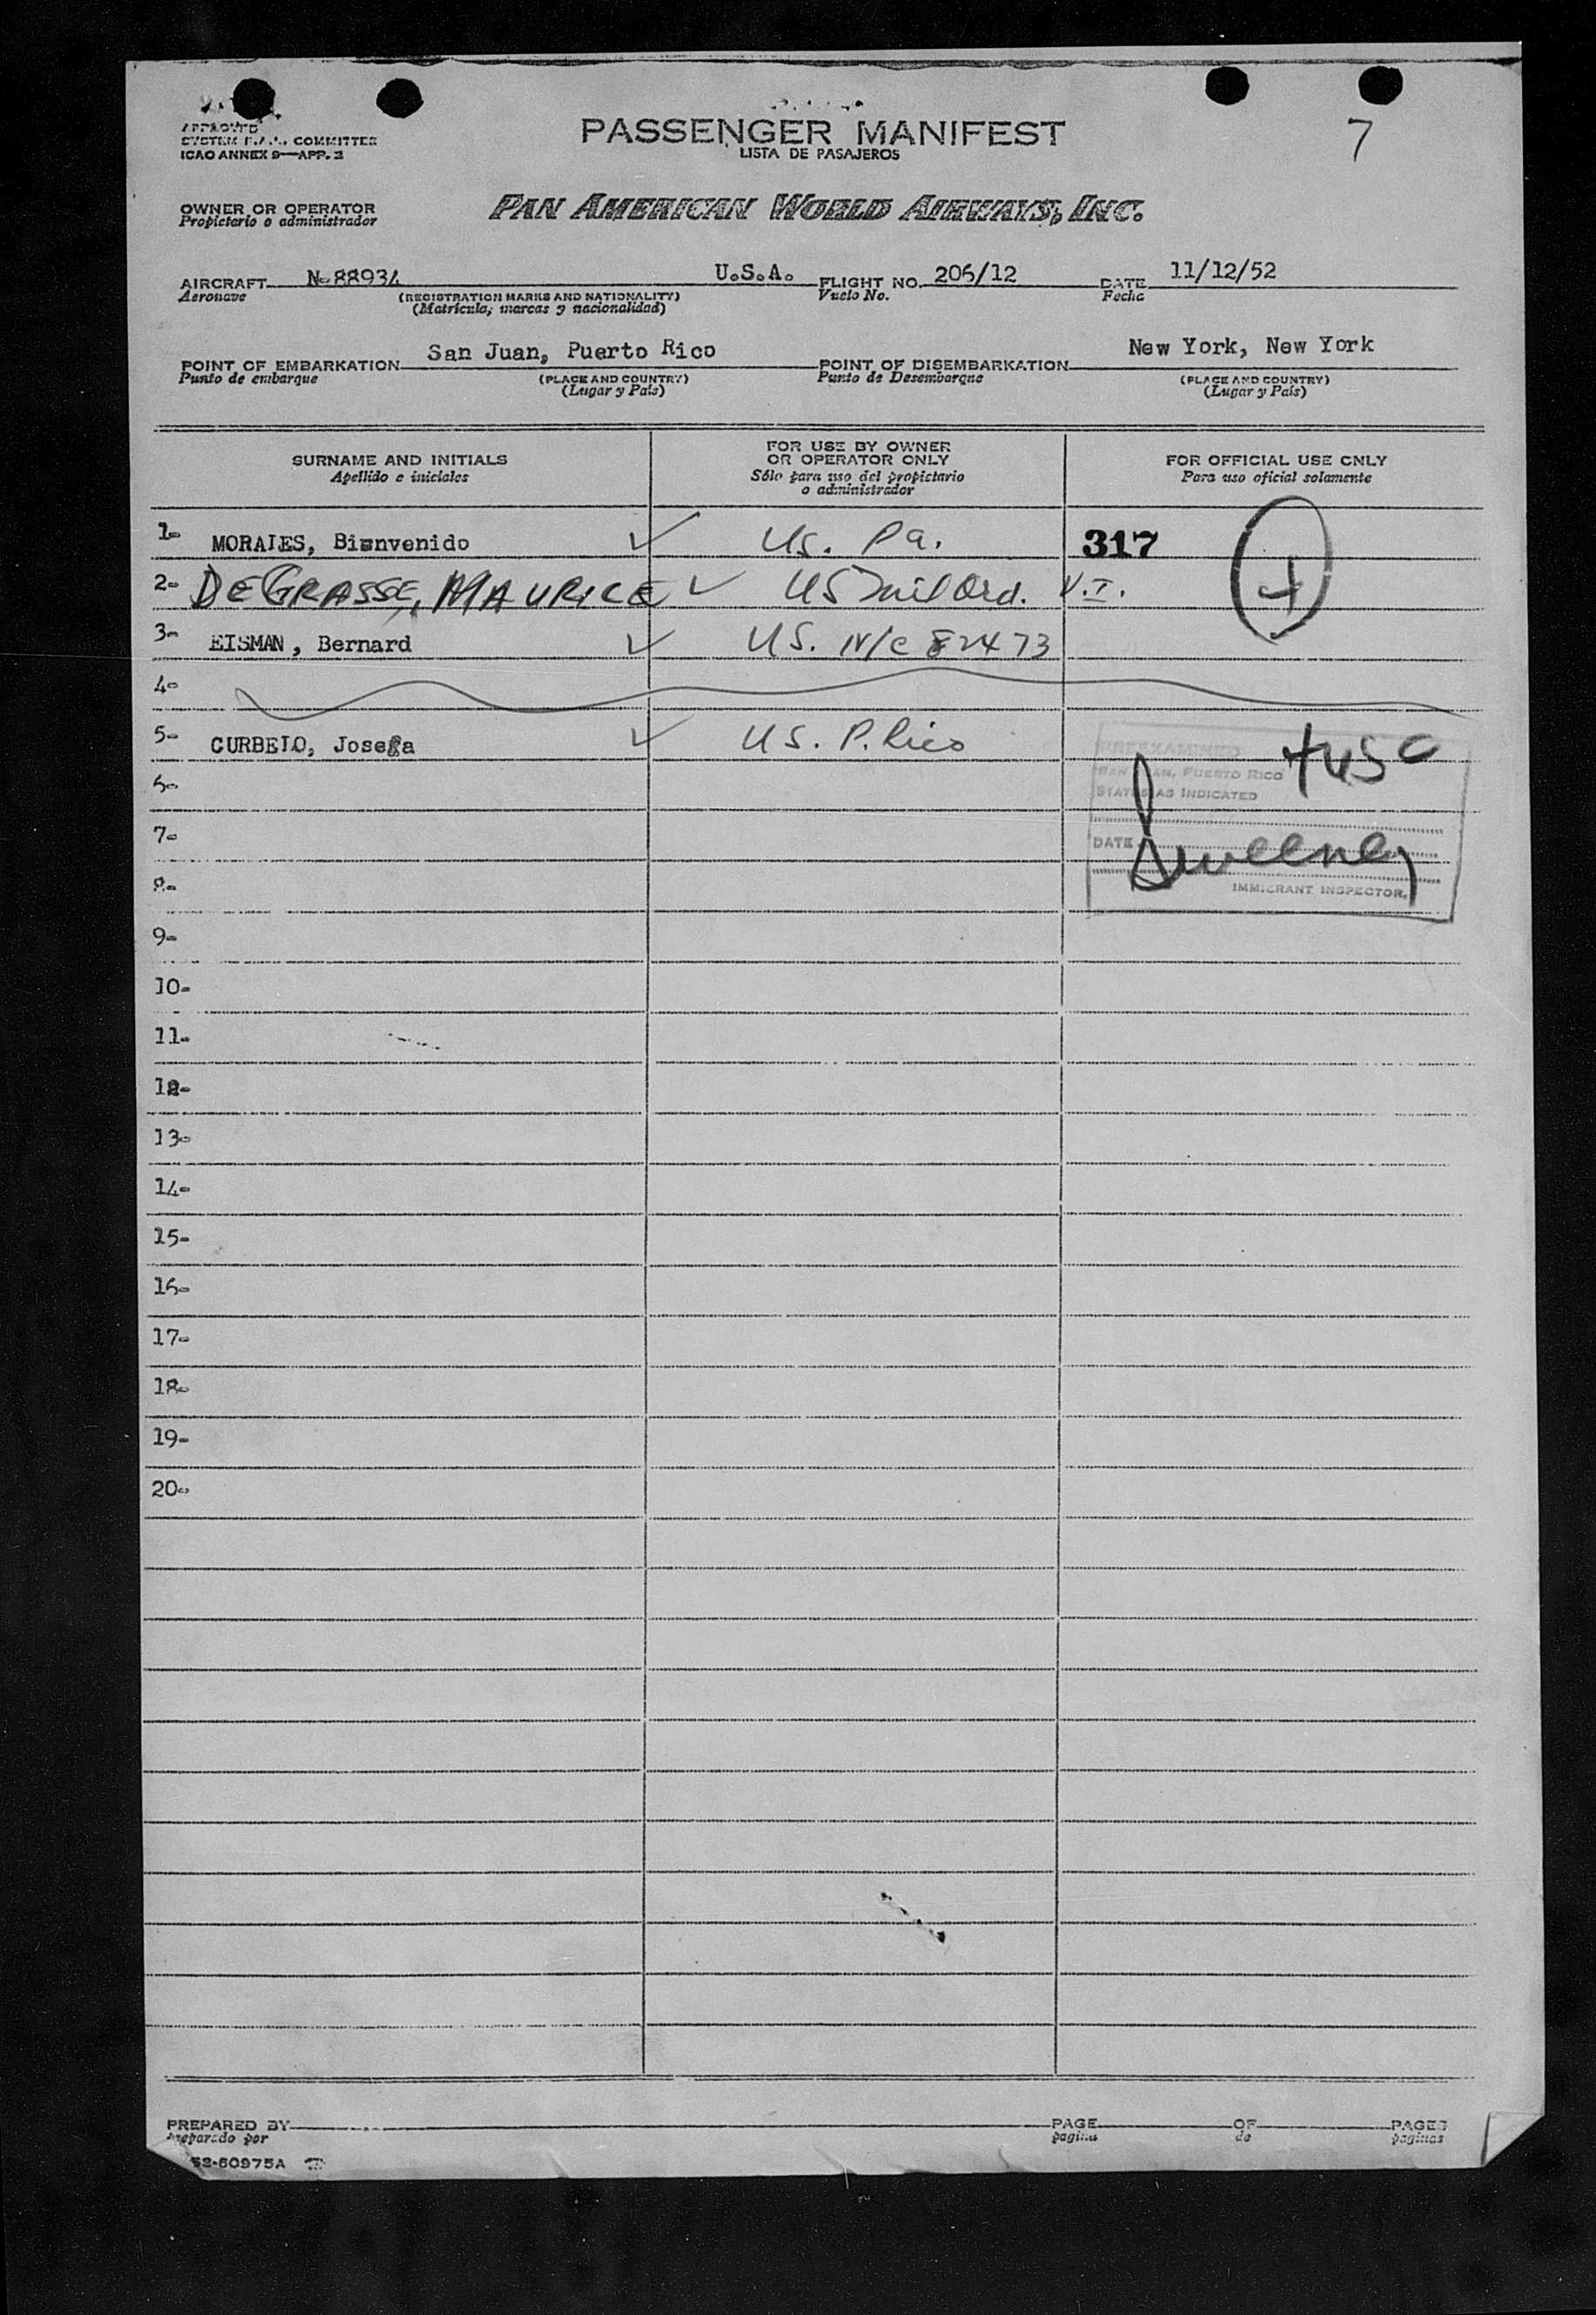 APPROVED
SYSTEM F.A.L. COMMITTEE
ICAO ANNEX 9—APP. 2
PASSENGER MANIFEST
LISTA DE PASAJEROS
7
OWNER OR OPERATOR
Propietario o administrador
PAN AMERICAN WORLD AIRWAYS, INC.
AIRCRAFT N-88934 U.S.A. FLIGHT NO. 206/12 DATE 11/12/52
Aeronave (REGISTRATION MARKS AND NATIONALITY) Vuelo No. Fecha
(Matrícula, marcas y nacionalidad)
POINT OF EMBARKATION San Juan, Puerto Rico POINT OF DISEMBARKATION New York, New York
Punto de embarque (PLACE AND COUNTRY) Punto de Desembarque (PLACE AND COUNTRY)
(Lugar y País) (Lugar y País)
SURNAME AND INITIALS
Apellido e iniciales
FOR USE BY OWNER
OR OPERATOR ONLY
Sólo para uso del propietario
o administrador
FOR OFFICIAL USE ONLY
Para uso oficial solamente
1- MORALES, Bienvenido US. Pa. 317
2- DEGRASSE, MAURICE US Ord. V.I.
3- EISMAN, Bernard US. N/C 82473
4-
5- CURBELO, Josefa US. P. Rico
PREEXAMINED
SAN JUAN, PUERTO RICO
STATUS AS INDICATED
DATE
Sweeney
IMMIGRANT INSPECTOR.
6-
7-
8-
9-
10-
11-
12-
13-
14-
15-
16-
17-
18-
19-
20-
PREPARED BY PAGE OF PAGES
Preparado por pagina de paginas
52-60975A